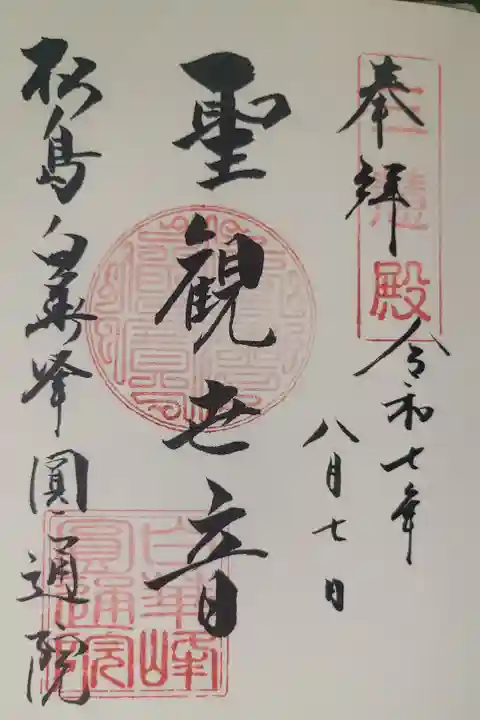 奉拝
令和七年
八月七日
聖観世音
松島白華峰圓通院
三慧殿
白華峰
圓通院